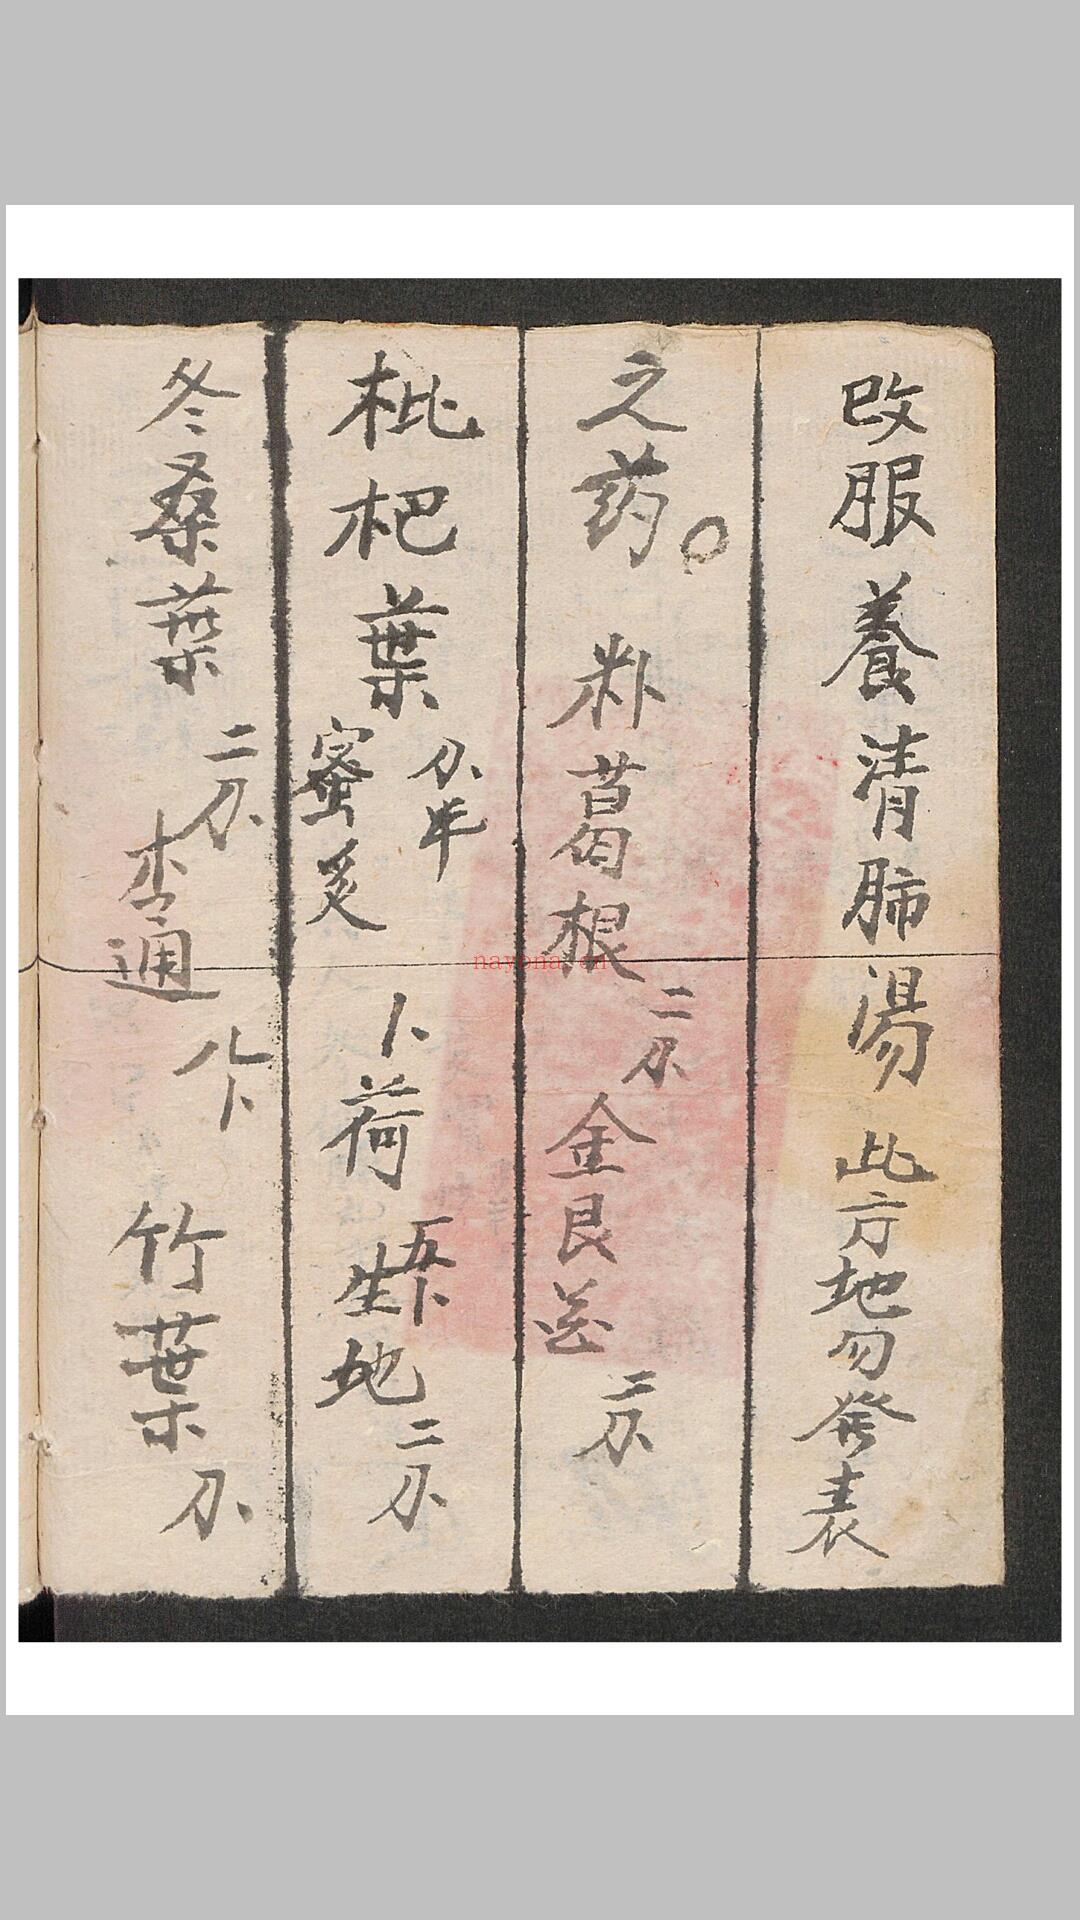 改服養清肺湯 此方地勿發表
之药。 粉葛根二刄 金艮花二刄
枇杷葉刄半 蜜炙 卜荷五卜 生地二刄
冬桑葉二刄 李通八卜 竹葉刄
nayona.cn